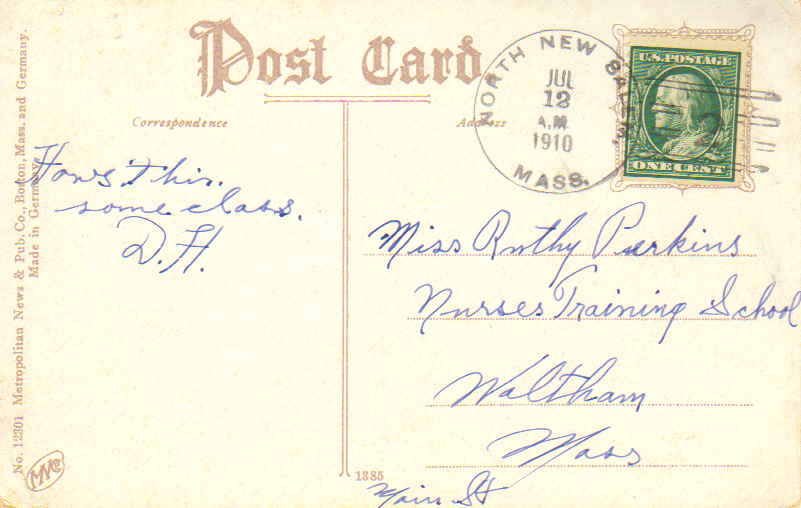 Post Card
Correspondence
Address
NORTH NEW SALEM,
JUL
12
A.M.
1910
MASS.
U.S. POSTAGE
ONE CENT
How's this.
some class.
D.H.
Miss Ruthy Perkins
Nurses Training School
Waltham
Mass
Main St
1385
No. 12301 Metropolitan News & Pub. Co., Boston, Mass. and Germany.
Made in Germany.